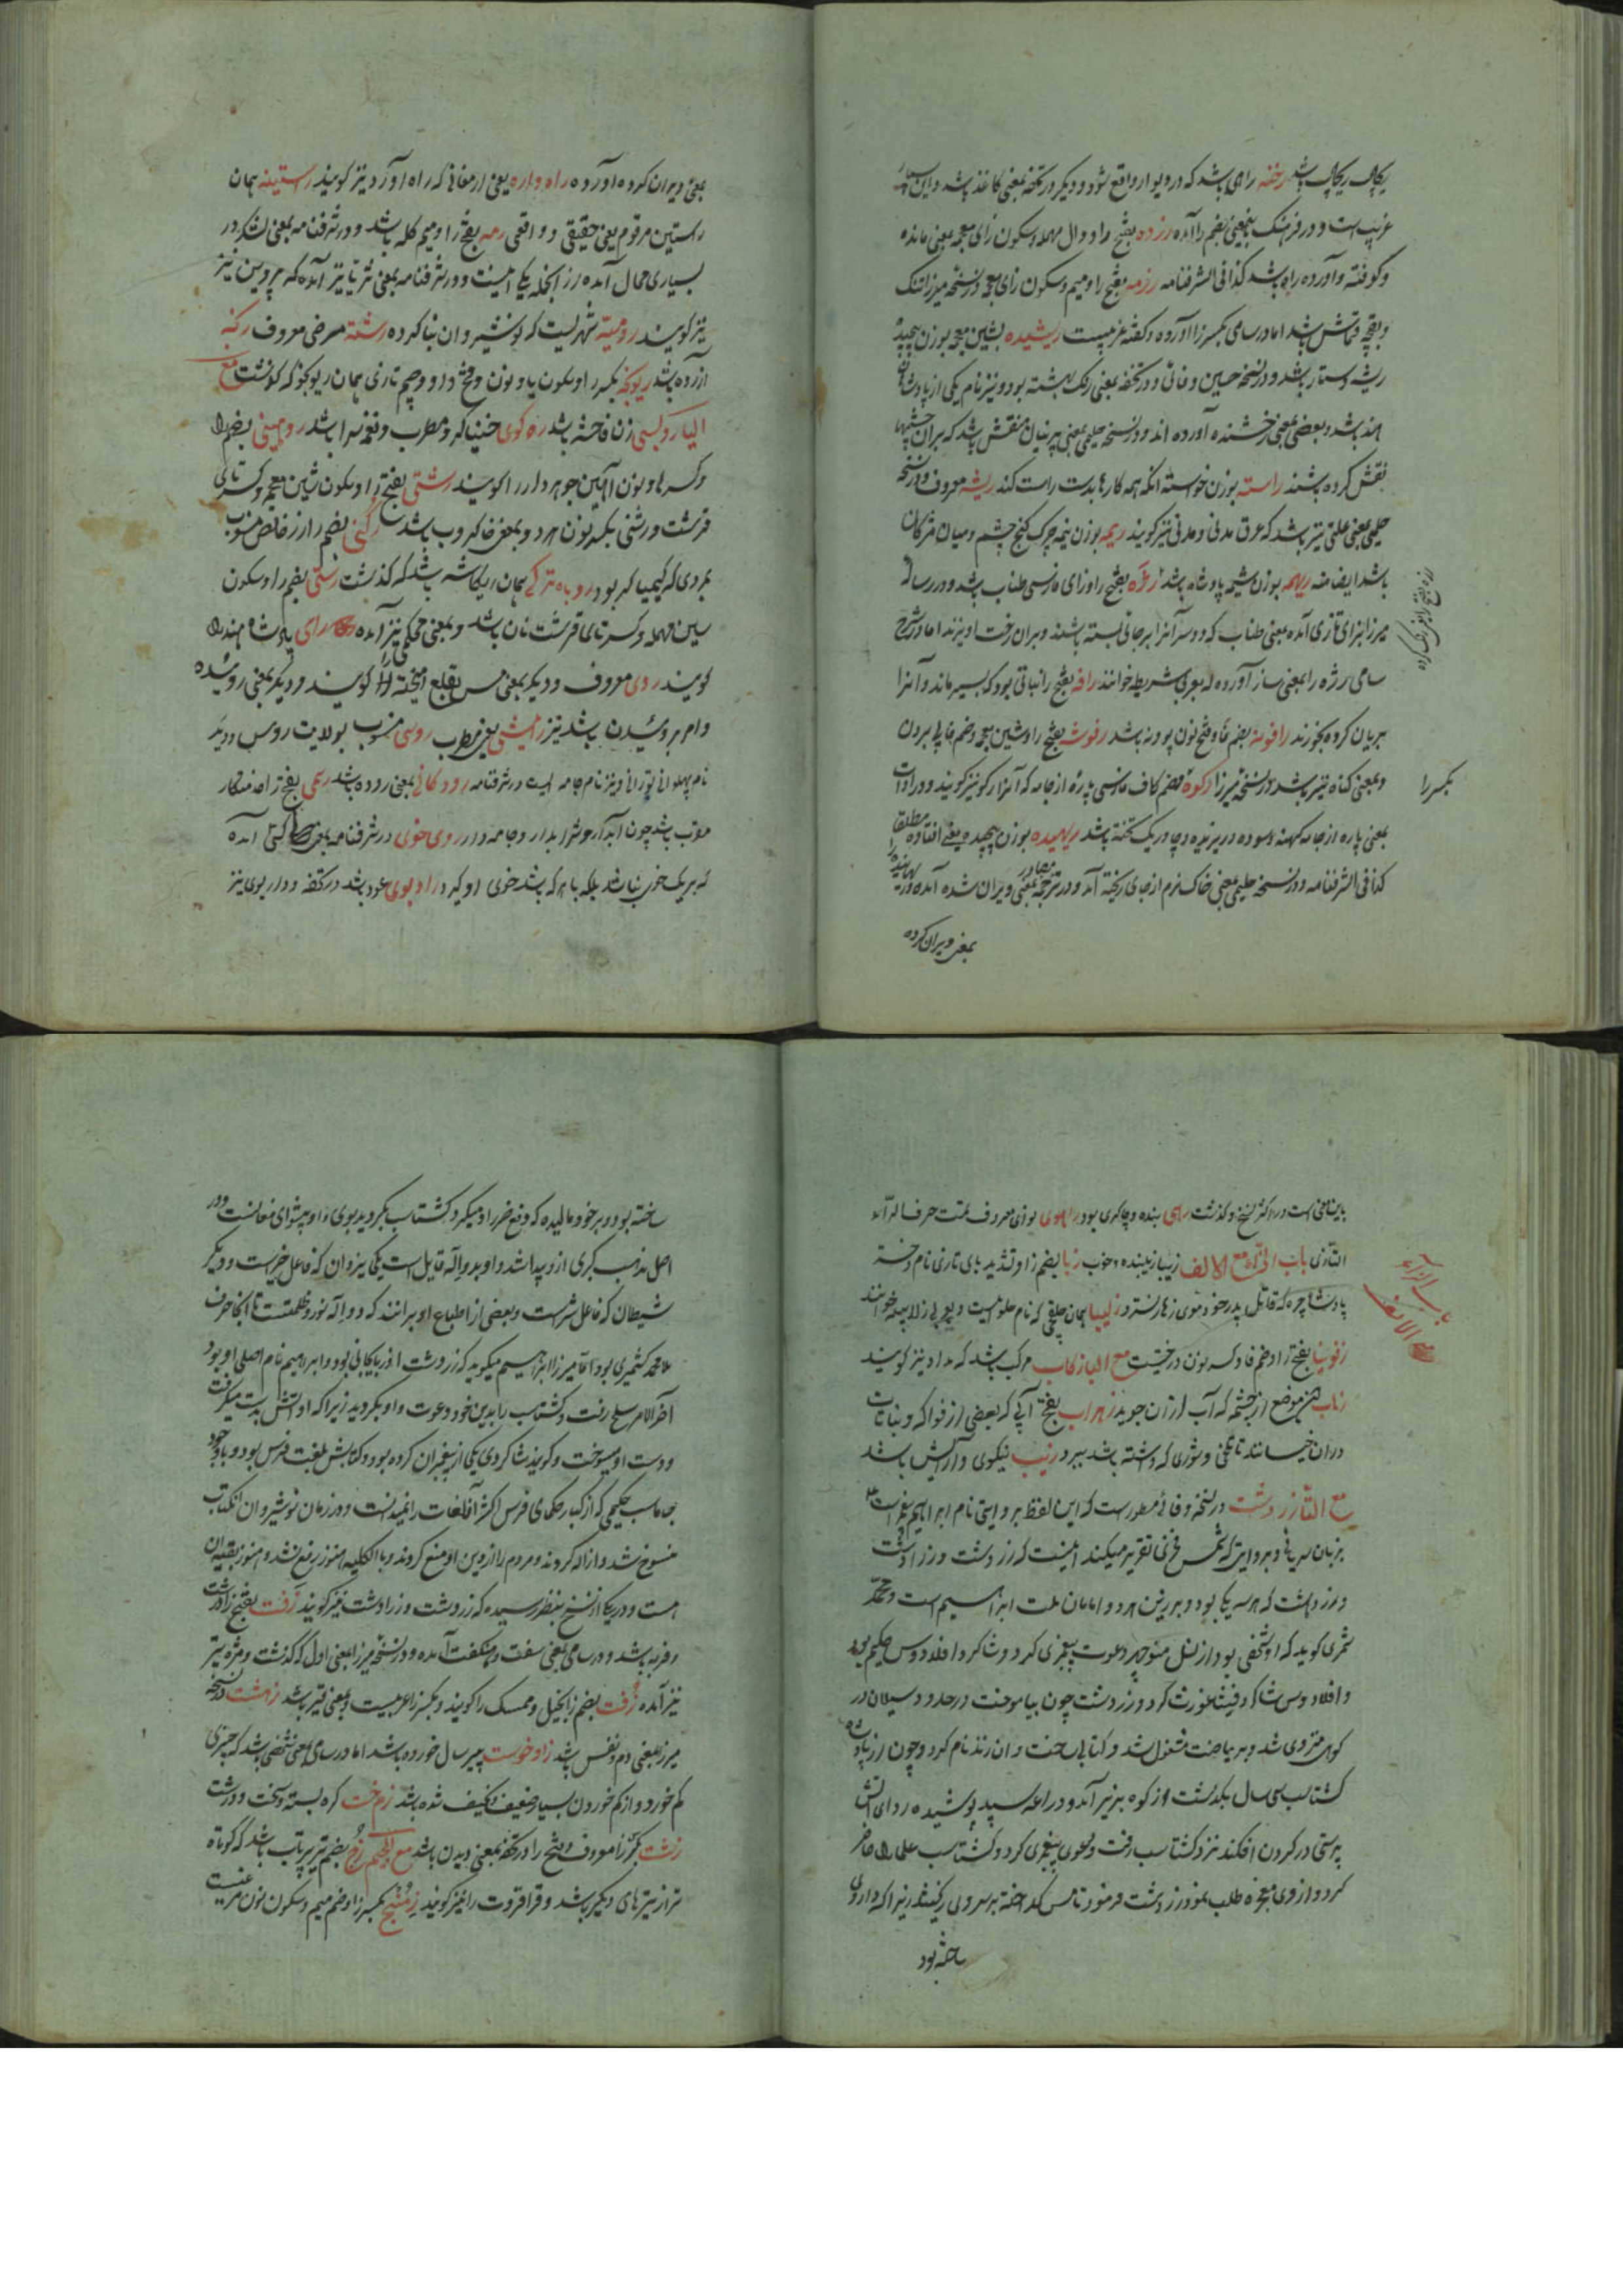 ریکاپ ریچاپ باشد رخنه راهی باشد که در دیوار واقع شود و دیگر در تحفه بمعنی کاغذ باشد و این بسیار
غریب است و در فرهنگ باینمعنی بضم را آمده رزده بفتح را و دال مهمله و سکون زای معجمه بمعنی مانده
و کوفته و آزرده راه باشد کذا فی الشرفنامه رزمه بفتح را و میم و سکون زای معجمه در نسخه میرزا تنک
و بقچه قماش باشد اما در سامی بکسر را آورده و گفته عربیست ریشیده بشین معجمه بوزن پیچیده
ریشه دستار باشد و در نسخه حسین وفائی و در تحفه بمعنی رنک بهشته بود و نیز نام یکی از پادشاهان
هند باشد و بعضی بمعنی رخشنده آورده اند و در نسخه حلیمی بمعنی پرنیان منقش باشد که بران چشمها
نقش کرده باشند راسته بوزن خواسته آنکه همه کارها بدست راست کند ریشه معروف و در نسخه
حلیمی بمعنی علتی نیز باشد که عرق مدنی و مدنی نیز گویند ریمه بوزن نیمه چرک کنج چشم و میان مژگان
باشد ایضا منه ریهمه بوزن شیمه پادشاه باشد رژه بفتح را و زای فارسی طناب باشد و در رساله
میرزا بزای تازی آمده بمعنی طناب که دو سر آنرا بر جائی بسته باشند و بران رخت اویزند اما در شرح
سامی رژه را بمعنی ساز آورده که بعربی شریطه خوانند رافه بفتح را نباتی بود که بسیر ماند و آنرا
بریان کرده بخورند رافونه بضم فا و فتح نون پودنه باشد رفوشه بفتح را و شین معجمه و ضم فا پی بردن
و بمعنی گناه نیز باشد در نسخه میرزا رکوه بضم کاف فارسی پاره از جامه که آنرا رکو نیز گویند و در ادات
بمعنی پاره از جامه کهنه و سوده در یزیده و چادر یک تخته باشد ریهیده بوزن پیچیده یعنی افتاده مطلقا
کذا فی الشرفنامه و در نسخه حلیمی بمعنی خاک نرم از جای ریخته آمد و در ترجمه مصادر بمعنی ویران شده آمده و ریهانیده را
بمعنی ویران کرده
رزه بفتح را نوعی
بکسر را
بمعنی ویران کرده آورده راه واره یعنی ارمغانی که راه آورد نیز گویند راستینه همان
راستین مرقوم یعنی حقیقی و واقعی رمه بفتح را و میم گله باشد و در شرفنامه بمعنی لشکر در
بسیاری محال آمده از انجمله یکی اینست و در شرفنامه بمعنی ثریا نیز آمده که پروین نیز
نیز گویند رومیه شهریست که نوشیروان بنا کرده رشته مرضی معروف رکنه
آزرده باشد ریونجه بکسر را و سکون یا و نون و فتح واو و جیم تازی همان ریوجو که گذشت مع
الیا روسبی زن فاحشه باشد ره کوی خنیاگر و مطرب و نغمه سرا باشد روهینی بضم را
و کسر ها و نون آهنین جوهردار را گویند رشتی بفتح را و سکون شین معجمه و کسر تای
قرشت و رشنی بکسر نون هر دو بمعنی خاکروب باشد رکنی بضم را زر خالص منسوب
بمردی که کیمیاگر بود روباه ترکی همان ریکاشه باشد که گذشت رستی بضم را و سکون
سین مهمله و کسر تای قرشت نان باشد و بمعنی محکمی نیز آمده رای پادشاه هند را
گویند روی معروف و دیگر بمعنی مس بقلع آمیخته را گویند و دیگر بمعنی روینده
و امر بروئیدن باشد نیز رامشی یعنی مطرب روسی منسوب بولایت روس و دیگر
نام پهلوانی تورانی و نیز نام جامه ایست در شرفنامه رودکانی بمعنی روده باشد رهی بفتح را خدمتکار
مؤدب باشد چون آبدار و شرابدار و جامه دار روی خوی در شرفنامه بمعنی کسی آمده
که بریک خوی نباشد بلکه با هر که باشد خوی او گیرد راد بوی عود باشد در تحفه و دار بوی نیز
باینمعنی است در اکثر نسخ و گذشت رهی بنده و چاکری بود راهوی بوزن معروف تمت حرف الراء
التازی باب الزاء مع الالف زیبا زیبنده و خوب زبا بضم زا و تشدید بای تازی نام دختر
پادشاه جزیره که قاتل پدر خود موی زهار نسترد زلیبیا همان چلپی که نام حلوائیست و بعربی زلابیه خوانند
زفونیا بفتح زا و ضم فا و کسر نون درختیست مع البا زکاب مرکب باشد که مداد نیز گویند
زاب نیز موضع از چشمه که آب از ان جوید زهراب بفتح آبی که بعضی از فواکه و نباتات
در ان خیسانند تا تلخی و شوری که داشته باشد ببرد زیب نیکوی و آرایش باشد
مع التا زردشت در نسخه وفائی مسطور است که این لفظ بروایتی نام ابراهیم پیغمبر است ع م
بزبان سریانی و بروایتی که شمس فخری تقریر میکند اینست که زردشت و زرادشت
و زردهشت که هر سه یکی بود و برین هر دو امامان ملت ابراهیم است و محمد
ثمری گوید که او شخصی بود از نسل منوچهر دعوت پیغمبری کرد و شاگرد افلادوس حکیم بود
و افلادوس شاگرد فیثاغورث کرد و زردشت چون بیاموخت در حدود سبلان در
کوهی منزوی شد و بریاضت مشغول شد و کتابی ساخت و ان زند نام کرد و چون از پادشاهی
گشتاسب سی سال بگذشت از کوه بزیر آمد و دراعه سپید پوشیده ردای آتش
پرستی در گردن افکند نزد گشتاسب رفت و دعوی پیغمبری کرد و گشتاسب علما را حاضر
کرد و از وی معجزه طلب نمود زردشت فرمود تا مس گداخته بر سر وی ریختند زیرا که داروی
ساخته بود
باب الزاء
مع الالف
ساخته بود و بر خود مالیده که دفع ضرر او میکرد گشتاسب بگروید بوی و او پیشوای مغانست و در
اصل مذهب گبری ازو پیدا شد و او بدو اله قایل است یکی یزدان که فاعل خیر است و دیگر
شیطان که فاعل شر است و بعضی از اطباع او برانند که دو اله نور و ظلمتست تا انجا حرف
ملا محمد کشمیری بود اما میرزا ابراهیم میگوید که زردشت اذربایجانی بود و ابراهیم نام اصلی او بود
آخر الامر ببلخ رفت و گشتاسب را بدین خود دعوت و او بگروید زیرا که او آتش بدست میگرفت
و دست او نمیسوخت و گویند شاگردی یکی از پیغمبران کرده بود و کتابش بلغت فرس بود و با وجود
جاماسب حکیمی که از کبار حکمای فرس اکثر آن لغات را نمیدانست و در زمان نوشیروان ان کتاب
منسوخ شد و ازاله کردند و مردم را از دین او منع کردند و بالکلیه هنوز رفع نشد و هنوز بقیه ان
هست و در یکی از نسخ بنظر رسیده که زردشت و زرادشت نیز گویند زفت بفتح زا درشت
و فربه باشد و در سامی بمعنی سفت و هنگفت آمده و در نسخه میرزا بمعنی اول که گذشت و مژه تیز
نیز آمده زفت بضم زا بخیل و ممسک را گویند و بکسر زا عربیست و بمعنی قیر باشد زهشت در نسخه
میرزا بمعنی دم و نفس باشد زاد خوست پیر سال خورده باشد اما در سامی بمعنی شخصی باشد که چیزی
کم خورد و از کم خوردن بسیار ضعیف و نحیف شده باشد زمخت گره بسته و سخت و درشت
زشت بکسر زا معروف و بفتح زا در تحفه بمعنی دیدن باشد مع الجیم زج بضم تیر پرتاب باشد که کوتاه
تر از تیرهای دیگر باشد و قراقروت را نیز گویند زمنج بکسر زا و ضم میم و سکون نون مرغیست